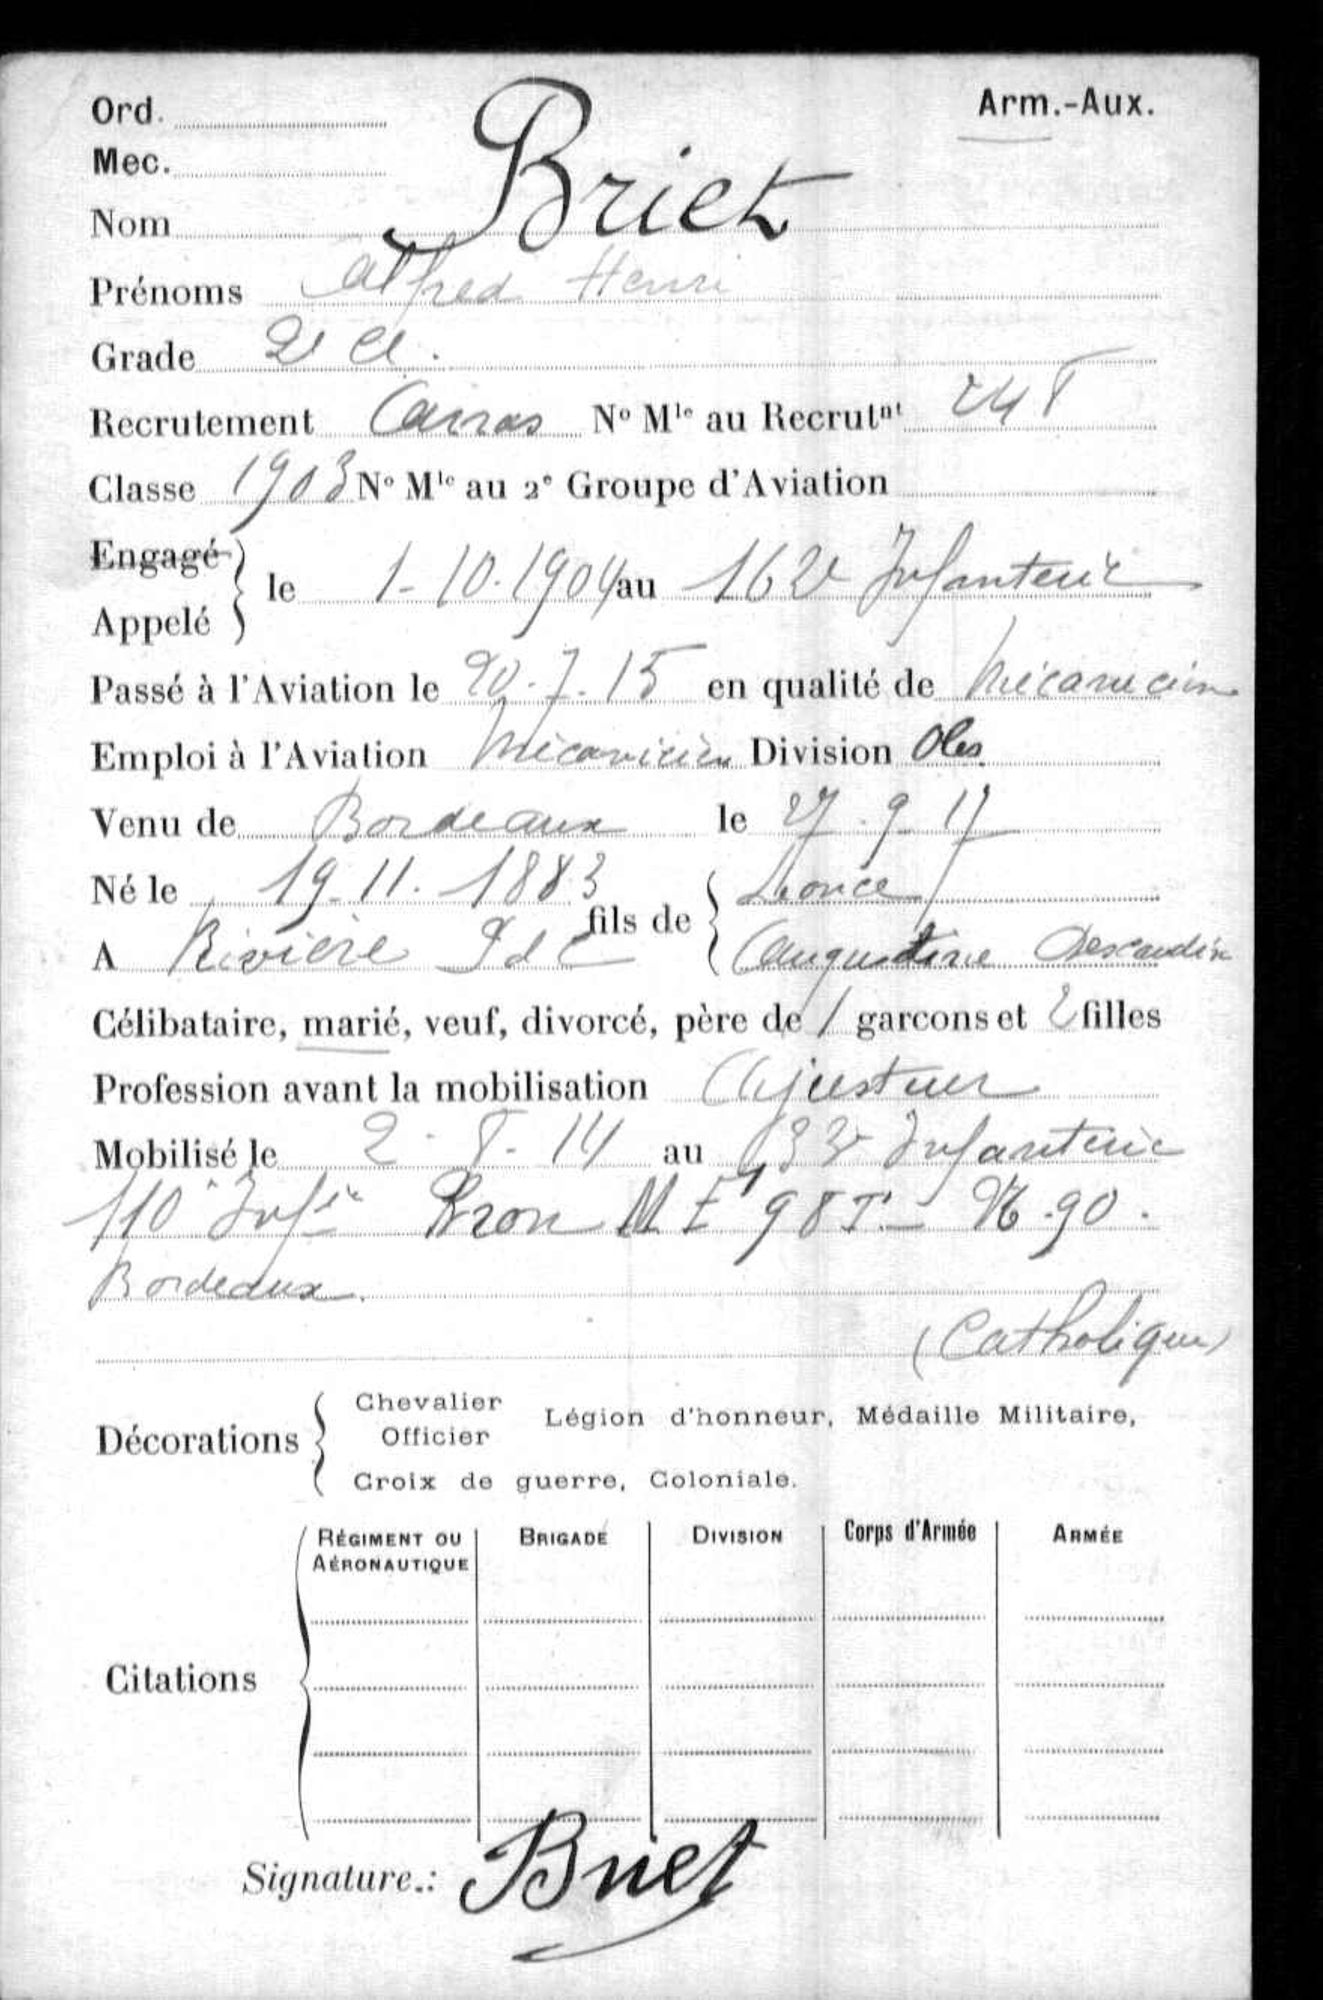 Ord. Arm.-Aux.
Mec.
Nom Briet
Prénoms Alfred Henri
Grade 2e Cl.
Recrutement Arras N° Mle au Recrutnt 248
Classe 1903 N° Mle au 2e Groupe d'Aviation
Engagé
Appelé } le 1-10-1904 au 162e Infanterie
Passé à l'Aviation le 20.7.15 en qualité de Mécanicien
Emploi à l'Aviation Mécanicien Division
Venu de Bordeaux le 27.9.17
Né le 19.11.1883 fils de { Léonce
A Rivière P d C Augustine
Célibataire, marié, veuf, divorcé, père de 1 garcons et 2 filles
Profession avant la mobilisation Ajusteur
Mobilisé le 2-8-14 au 33e Infanterie
110e Infie Bron M F 98 T.- N.90.
Bordeaux.
(Catholique)
Décorations { Chevalier
Officier Légion d'honneur, Médaille Militaire,
Croix de guerre, Coloniale.
Citations { RÉGIMENT OU AÉRONAUTIQUE BRIGADE DIVISION Corps d'Armée ARMÉE
Signature.: Briet